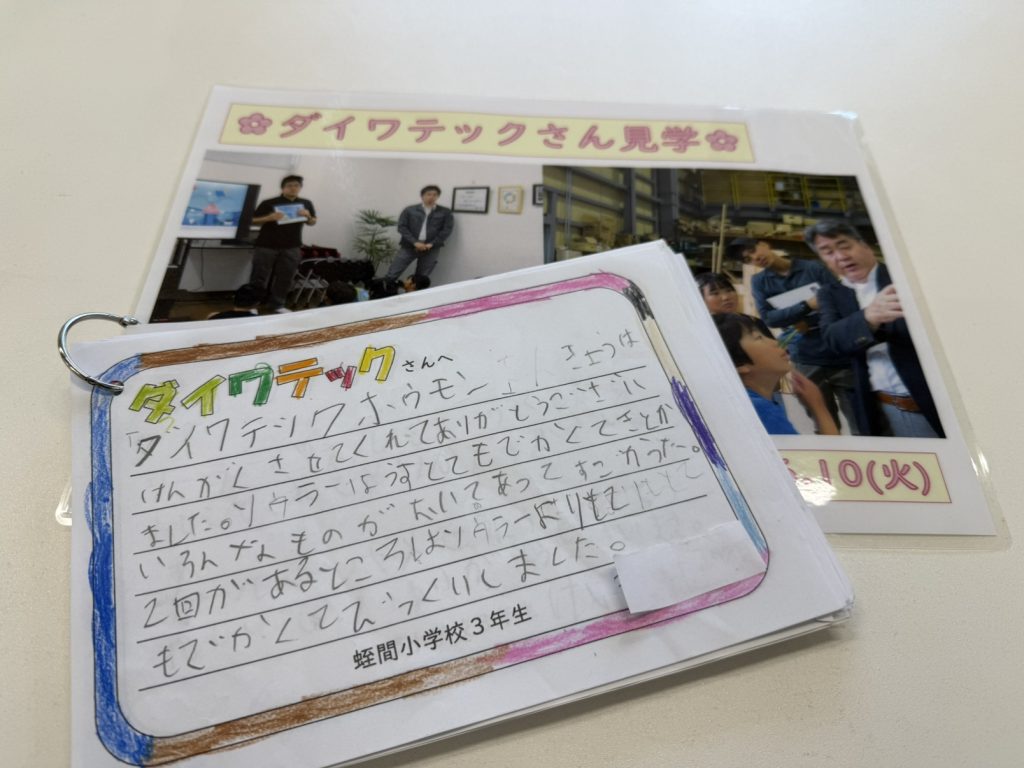 ✿ダイワテックさん見学✿
10(火)
ダイワテックさんへ
ダイワテックホウモン きょうは
けんがくさせてくれてありがとうござい
ました。ソウラーはうすとてもでかくてきとか
いろんなものがおいてあってすごかった。
2回があるところはソウラーよりもて
もでかくてびっくりしました。
蛭間小学校3年生